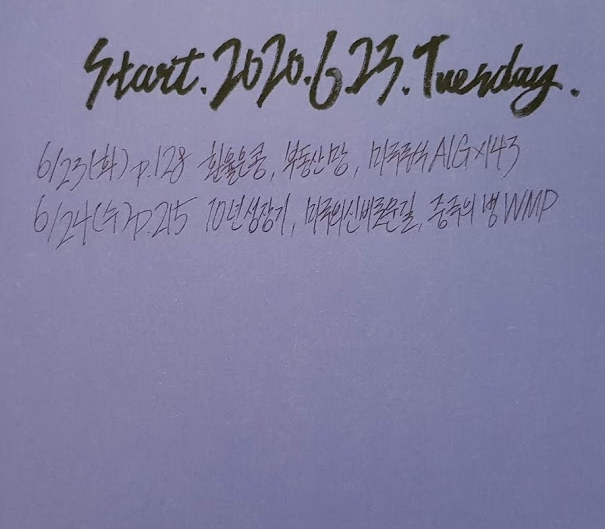 Start. 2020. 6. 23. Tuesday.
6/23(화) p.128 환율은 쿵, 부동산 망, 미국 AIG
6/24(수) p.215 10년 성장기, 미국의 신비로운 길, 중국의 병 WMP